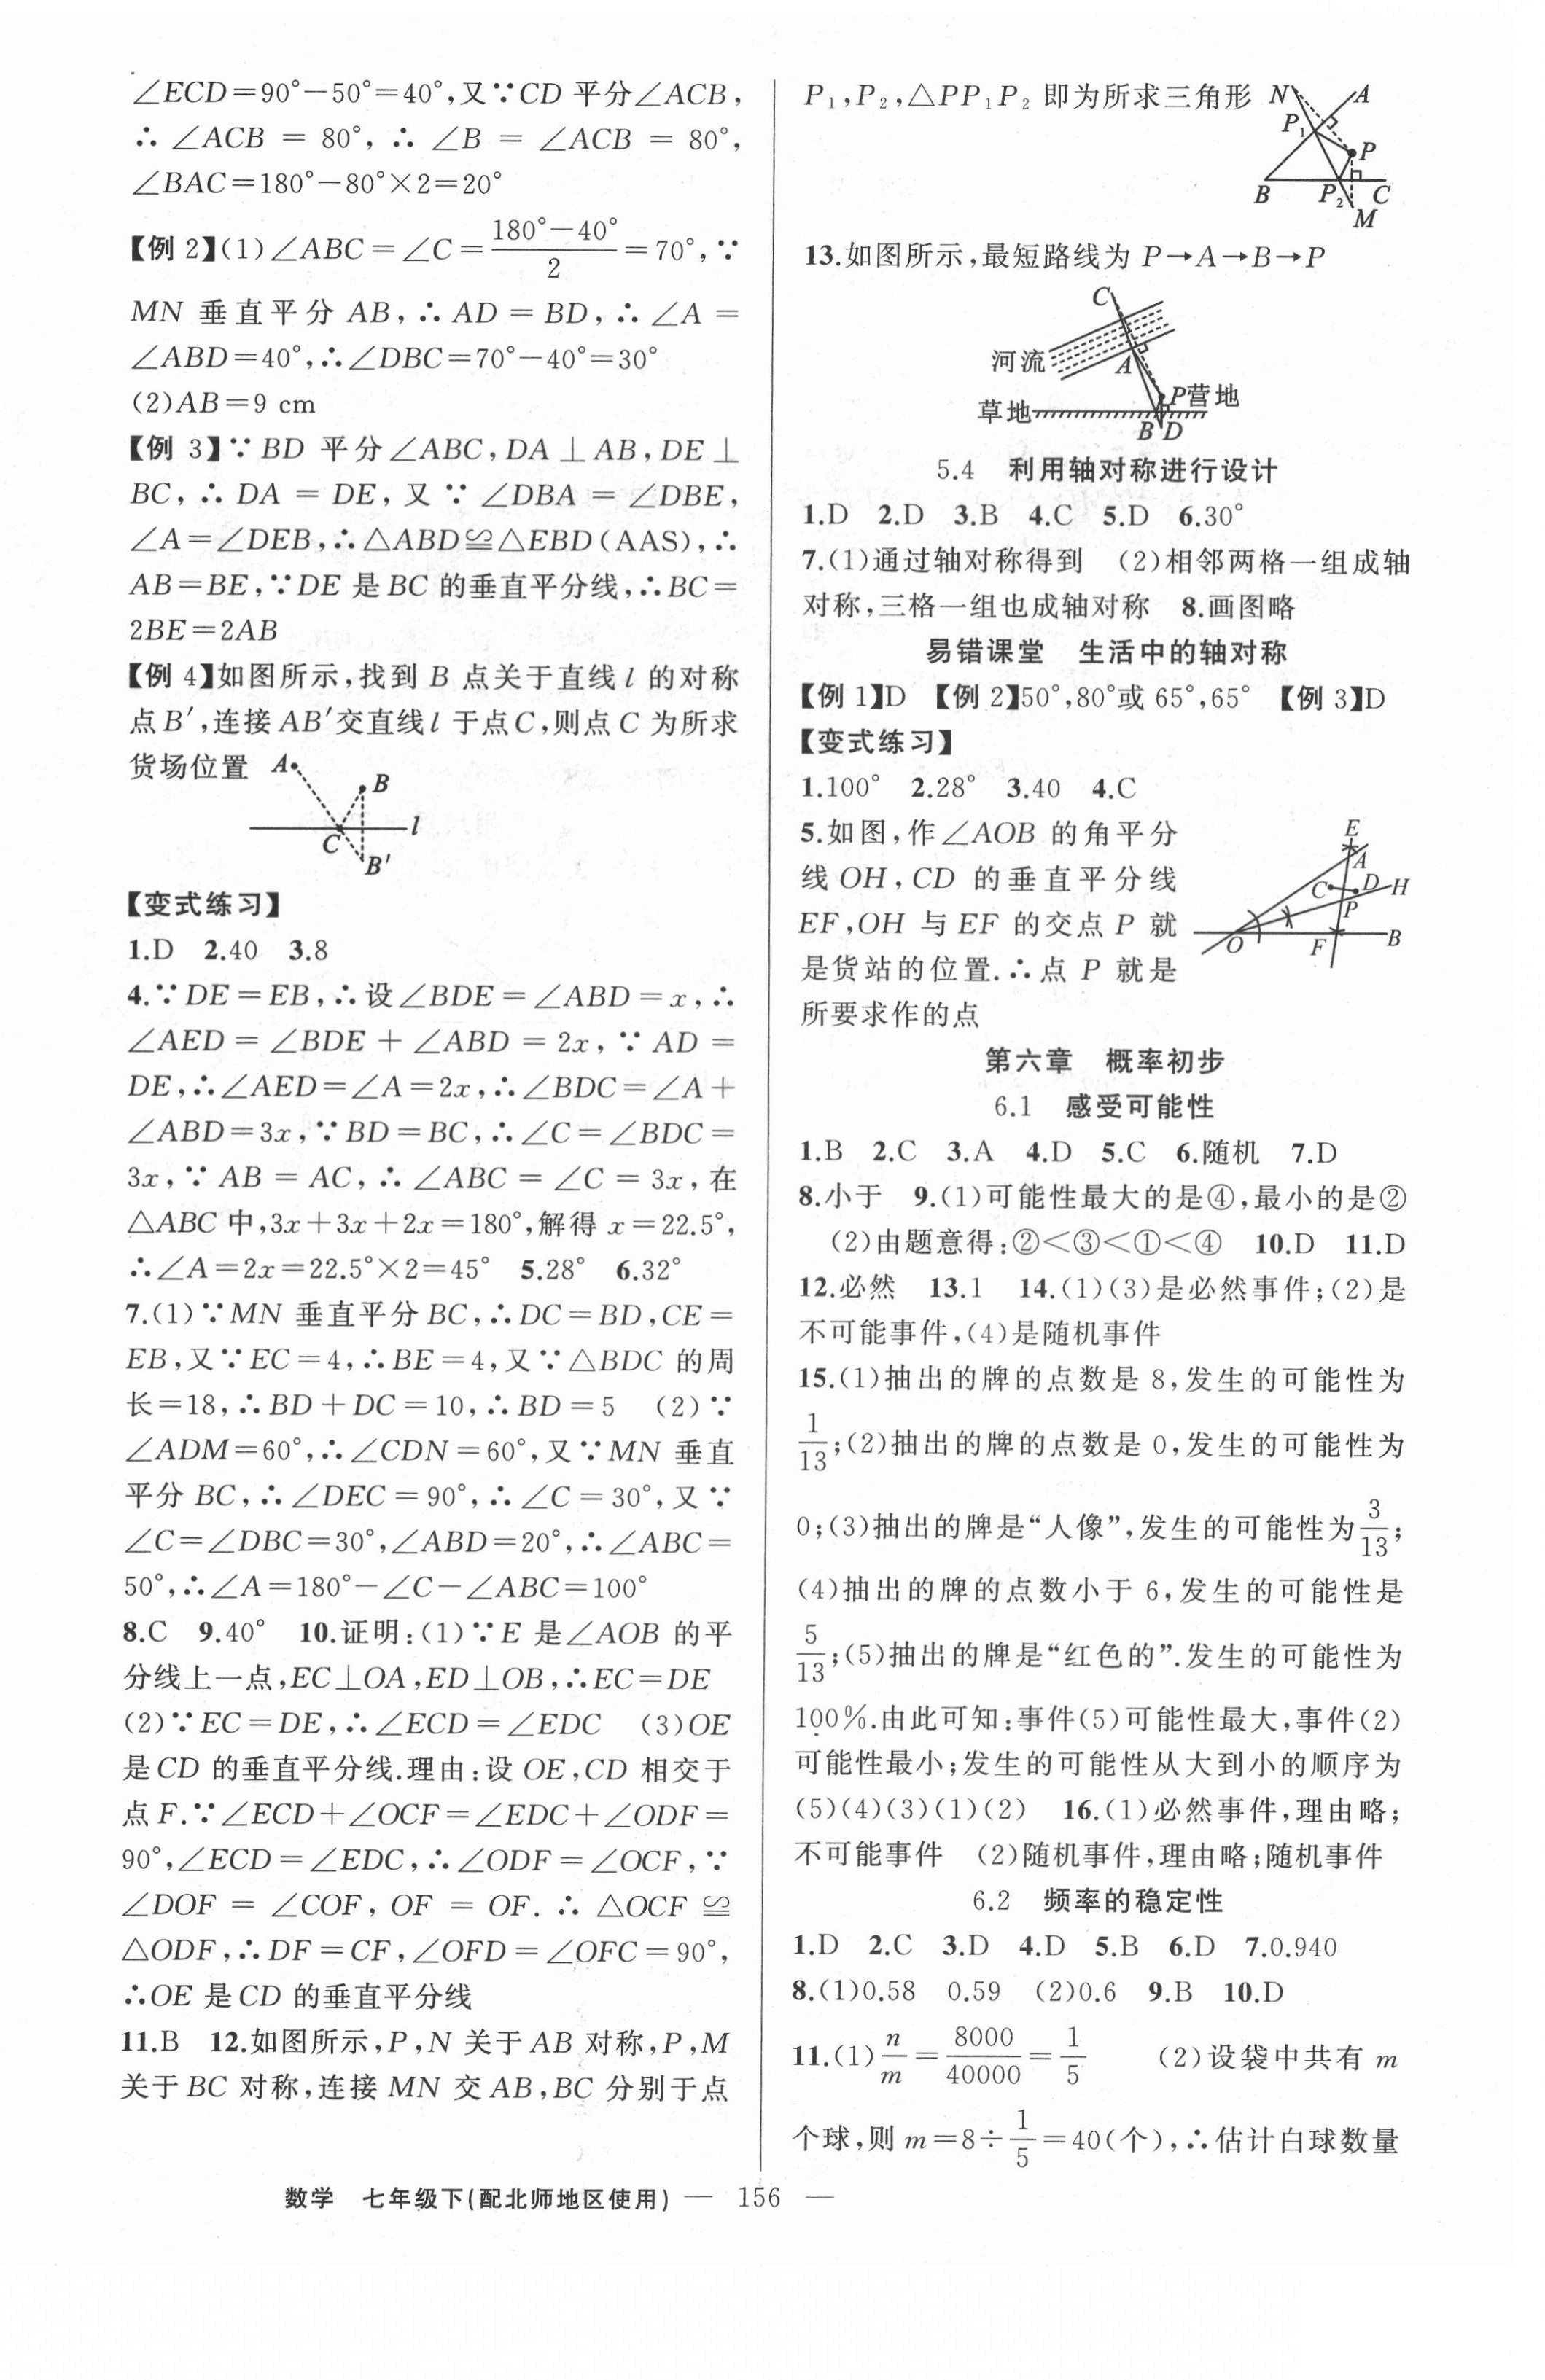 ∠ECD=90°-50°=40°,又∵CD 平分∠ACB,
∴ ∠ACB = 80°, ∴ ∠B = ∠ACB = 80°,
∠BAC=180°-80°×2=20°
【例 2】(1)∠ABC=∠C=\frac{180°-40°}{2}=70°,∵
MN 垂直平分 AB,∴AD=BD,∴∠A=
∠ABD=40°,∴∠DBC=70°-40°=30°
(2)AB=9 cm
【例 3】∵BD 平分∠ABC,DA⊥AB,DE⊥
BC,∴DA=DE,又∵∠DBA=∠DBE,
∠A=∠DEB,∴△ABD≌△EBD(AAS),∴
AB=BE,∵DE 是 BC 的垂直平分线,∴BC=
2BE=2AB
【例 4】如图所示,找到 B 点关于直线 l 的对称
点B′,连接 AB′交直线 l 于点C,则点 C 为所求
货场位置
A
B
l
C
B′
【变式练习】
1.D 2.40 3.8
4.∵DE=EB,∴设∠BDE=∠ABD=x,∴
∠AED=∠BDE+∠ABD=2x,∵AD=
DE,∴∠AED=∠A=2x,∴∠BDC=∠A+
∠ABD=3x,∵BD=BC,∴∠C=∠BDC=
3x,∵AB=AC,∴∠ABC=∠C=3x,在
△ABC 中,3x+3x+2x=180°,解得 x=22.5°,
∴∠A=2x=22.5°×2=45° 5.28° 6.32°
7.(1)∵MN 垂直平分 BC,∴DC=BD,CE=
EB,又∵EC=4,∴BE=4,又∵△BDC 的周
长=18,∴BD+DC=10,∴BD=5 (2)∵
∠ADM=60°,∴∠CDN=60°,又∵MN 垂直
平分 BC,∴∠DEC=90°,∴∠C=30°,又∵
∠C=∠DBC=30°,∠ABD=20°,∴∠ABC=
50°,∴∠A=180°-∠C-∠ABC=100°
8.C 9.40° 10.证明:(1)∵E 是∠AOB 的平
分线上一点,EC⊥OA,ED⊥OB,∴EC=DE
(2)∵EC=DE,∴∠ECD=∠EDC (3)OE
是CD 的垂直平分线.理由:设 OE,CD 相交于
点 F.∵∠ECD+∠OCF=∠EDC+∠ODF=
90°,∠ECD=∠EDC,∴∠ODF=∠OCF,∵
∠DOF = ∠COF, OF = OF. ∴ △OCF ≌
△ODF,∴DF=CF,∠OFD=∠OFC=90°,
∴OE 是CD 的垂直平分线
11.B 12.如图所示,P,N 关于 AB 对称,P,M
关于 BC 对称,连接 MN 交 AB,BC 分别于点
P₁,P₂,△PP₁P₂ 即为所求三角形
N
A
P₁
P
B
P₂
C
M
13.如图所示,最短路线为 P→A→B→P
C
河流
A
P营地
草地
B D
5.4 利用轴对称进行设计
1.D 2.D 3.B 4.C 5.D 6.30°
7.(1)通过轴对称得到 (2)相邻两格一组成轴
对称,三格一组也成轴对称 8.画图略
易错课堂 生活中的轴对称
【例 1】D 【例 2】50°,80°或 65°,65° 【例 3】D
【变式练习】
1.100° 2.28° 3.40 4.C
5.如图,作∠AOB 的角平分
线 OH,CD 的垂直平分线
EF,OH 与 EF 的交点 P 就
是货站的位置.∴点 P 就是
所要求作的点
E
A
C
D
H
P
O
F
B
第六章 概率初步
6.1 感受可能性
1.B 2.C 3.A 4.D 5.C 6.随机 7.D
8.小于 9.(1)可能性最大的是④,最小的是②
(2)由题意得:②<③<①<④ 10.D 11.D
12.必然 13.1 14.(1)(3)是必然事件;(2)是
不可能事件,(4)是随机事件
15.(1)抽出的牌的点数是 8,发生的可能性为
\frac{1}{13};(2)抽出的牌的点数是 0,发生的可能性为
0;(3)抽出的牌是“人像”,发生的可能性为\frac{3}{13};
(4)抽出的牌的点数小于 6,发生的可能性是
\frac{5}{13};(5)抽出的牌是“红色的”.发生的可能性为
100%.由此可知:事件(5)可能性最大,事件(2)
可能性最小;发生的可能性从大到小的顺序为
(5)(4)(3)(1)(2) 16.(1)必然事件,理由略;
不可能事件 (2)随机事件,理由略;随机事件
6.2 频率的稳定性
1.D 2.C 3.D 4.D 5.B 6.D 7.0.940
8.(1)0.58 0.59 (2)0.6 9.B 10.D
11.(1)\frac{n}{m}=\frac{8000}{40000}=\frac{1}{5} (2)设袋中共有 m
个球,则 m=8÷\frac{1}{5}=40(个),∴估计白球数量
数学 七年级下(配北师地区使用) — 156 —